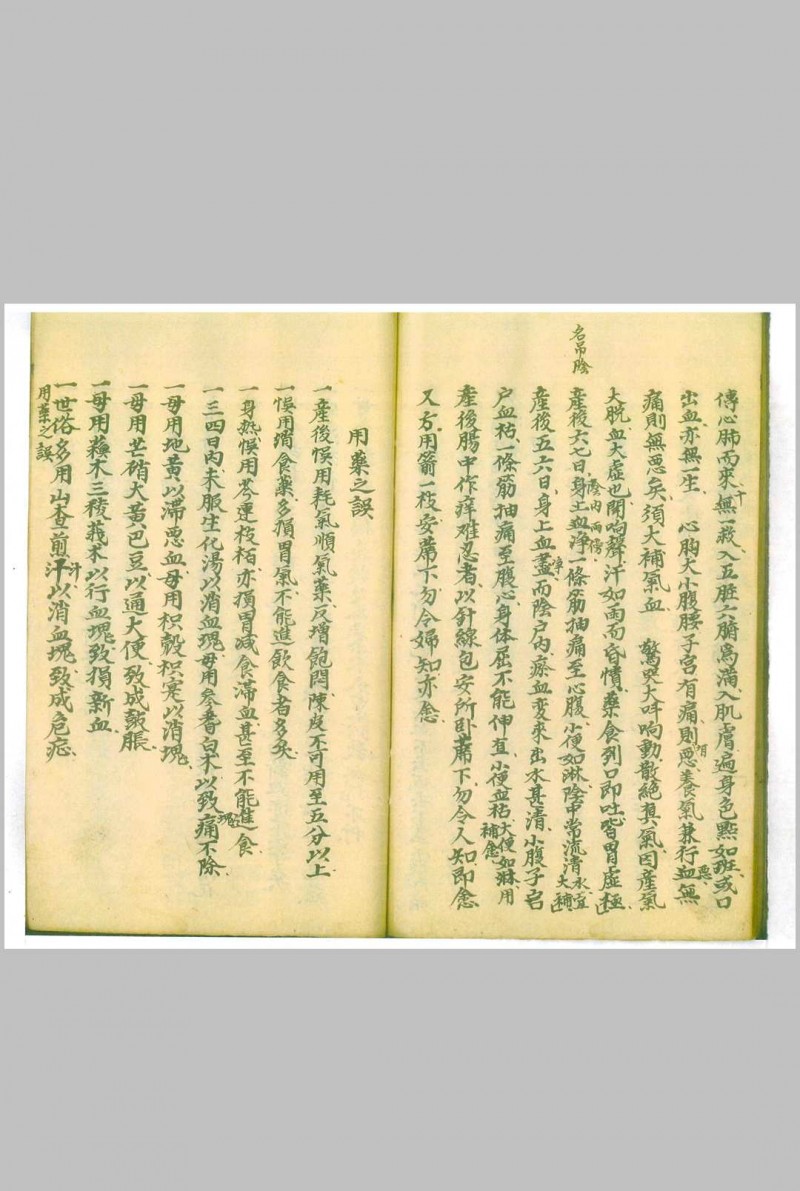 傳心肺而來無一救入五脏六腑為滿入肌膚遍身色點如班或口
出血亦無一生 心胸大小腹腰子宮有痛則惡養氣兼行血無惡
痛則無惡矣須大補氣血 驚哭大呌响動散絕真氣因產氣
大脱血大虛也開响聲汗如雨而昏憒藥食到口即吐皆胃虛極
名吊陰
產後六七日身上血淨一條筋抽痛至心腹小便如淋陰中常流清水宜大補
陰內兩傍
產後五六日身上血盡而陰户內瘀血变來出水甚清小腹子宮
户血枯一條筋抽痛至腹心身体屈不能伸直小便血枯大便如淋用補愈
產後腸中作痒难忍者以針線包安所卧蓆下勿令人知即愈
又方用箭一枝安蓆下勿令婦知亦愈
用藥之誤
一產後悞用耗氣順氣藥反增飽悶陳皮不可用至五分以上
一悞用消食藥多損胃氣不能進飲食者多矣
一身热悞用芩連梔栢亦損胃减食滞血甚至不能進食
一三四日內未服生化湯以消血塊毋用參耆白术以致塊痛不除
一毋用地黄以滞恶血毋用枳殼枳寔以消塊
一毋用芒硝大黄巴豆以通大便致成鼓脹
一毋用蘇木三棱莪术以行血塊致損新血
一世俗多用山查煎汁以消血塊致成危症
用藥之誤